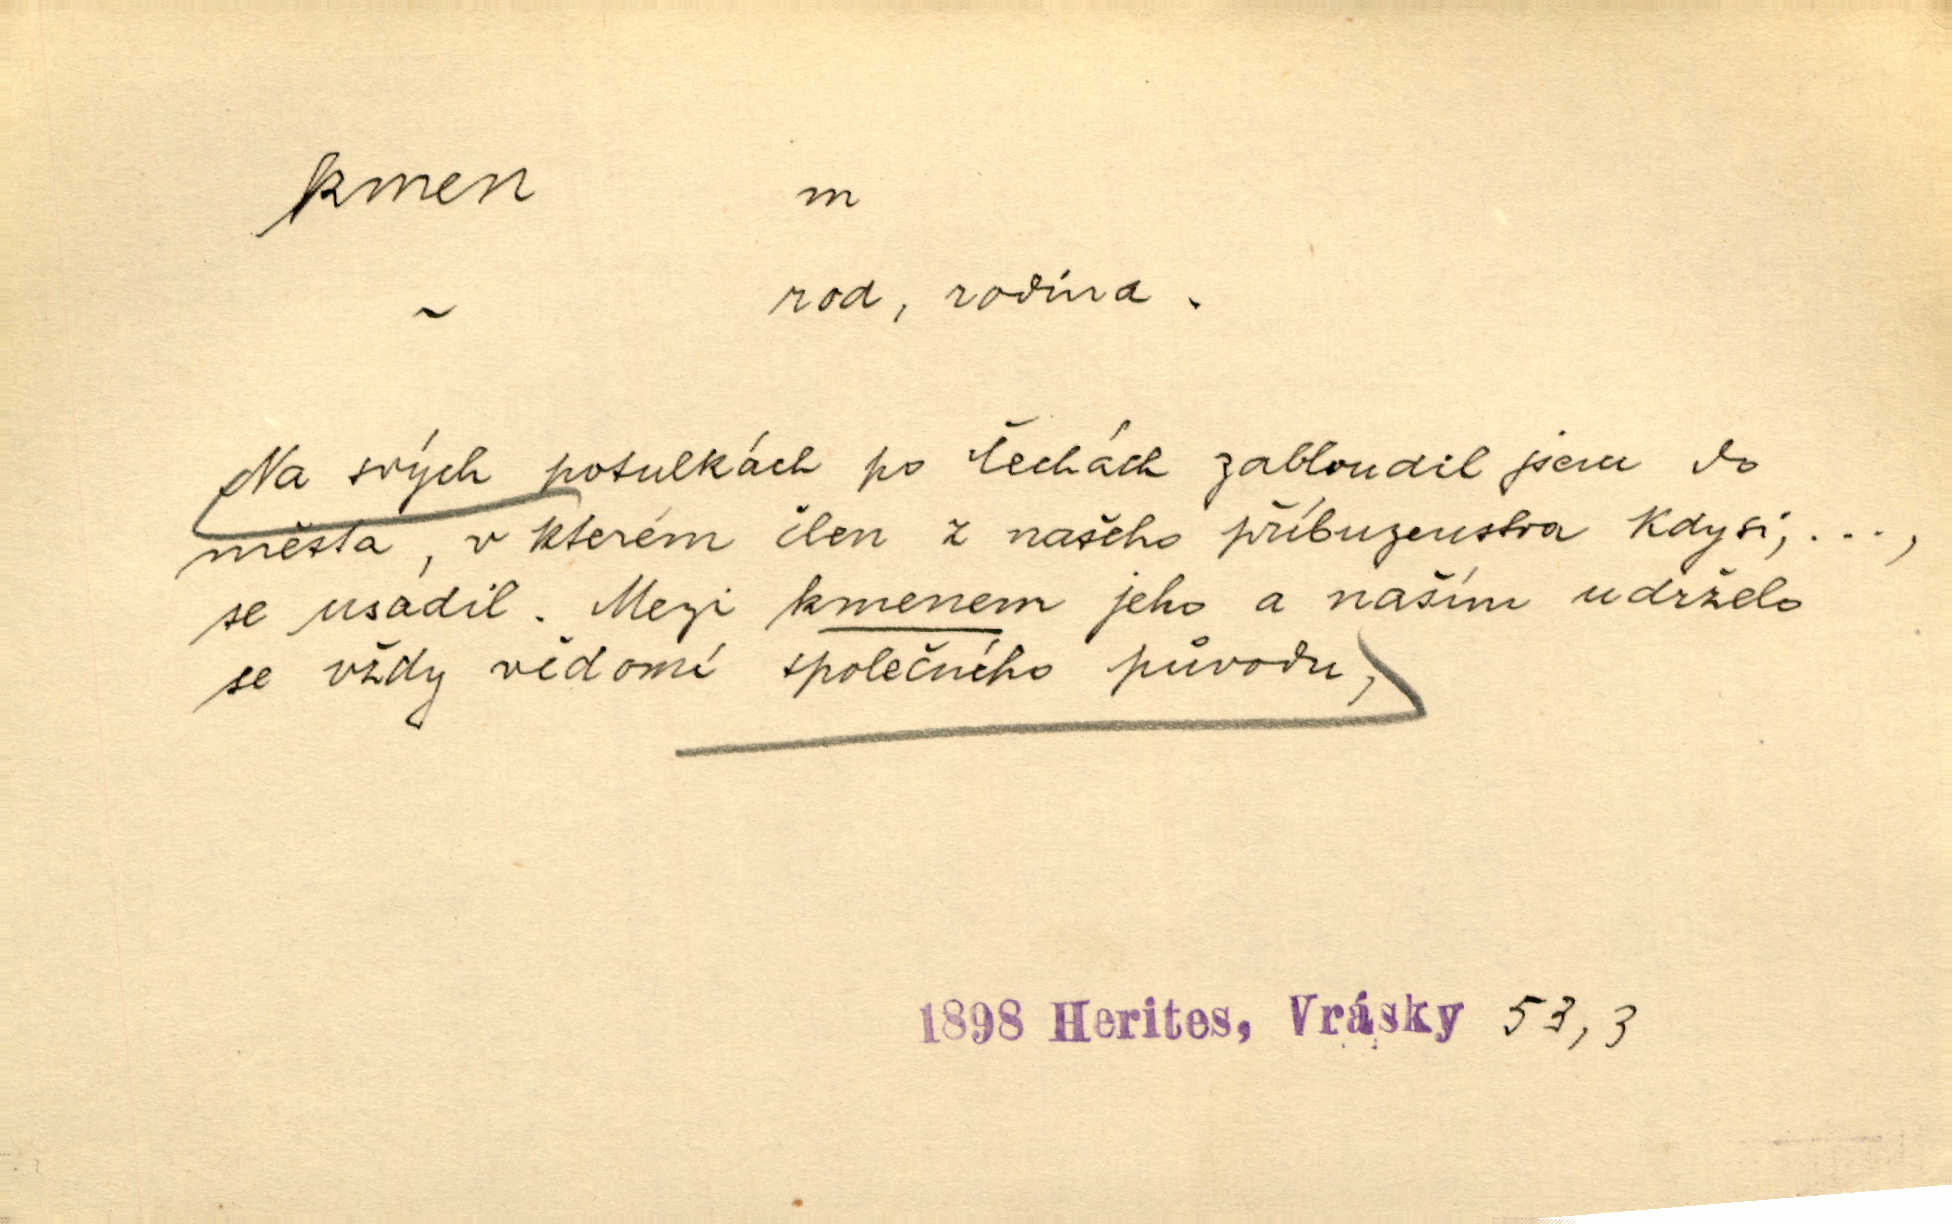 kmen m
~ rod, rodina.
Na svých potulkách po Čechách zabloudil jsem do
města, v kterém člen z našeho příbuzenstva kdysi, ...,
se usadil. Mezi kmenem jeho a naším udrželo
se vždy vědomí společného původu,
1898 Herites, Vrásky 53,3